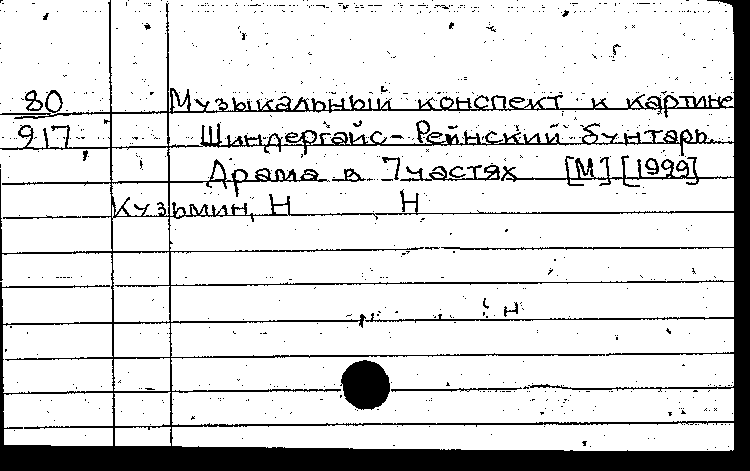 80
917
Музыкальный конспект к картине
Шиндергайс-Рейнский бунтарь.
Драма в 7 частях [М] [1999]
Кузьмин, Н Н